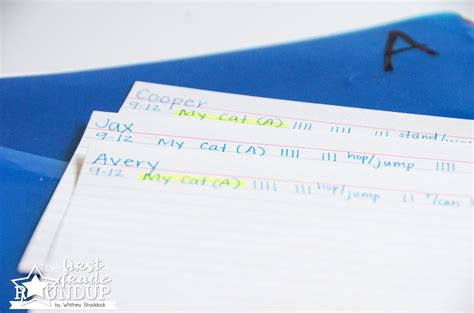 A
Cooper
9-12 My Cat (A) |||| ||| stand/
Jax
9-12 My Cat (A) |||| ||| hop/jump
Avery
9-12 My Cat (A) |||| ||| hop/jump ||
the first
grade
ROUNDUP
by Whitney Shaddock